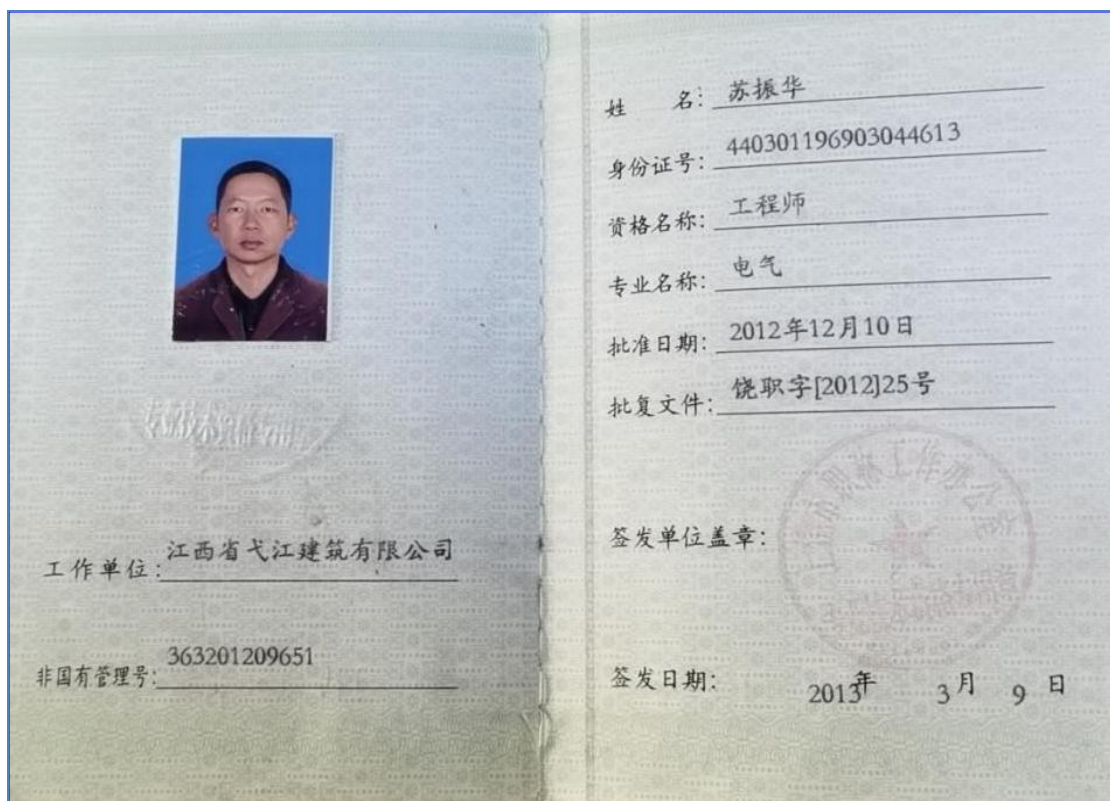 工作单位：江西省弋江建筑有限公司
非国有管理号：363201209651
姓　　名：苏振华
身份证号：440301196903044613
资格名称：工程师
专业名称：电气
批准日期：2012年12月10日
批复文件：饶职字[2012]25号
签发单位盖章：
上饶市职称工作办公室
签发日期：2013年　3月　9日